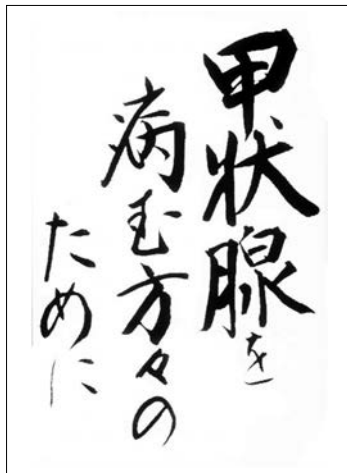 甲状腺を
病む方々の
ために